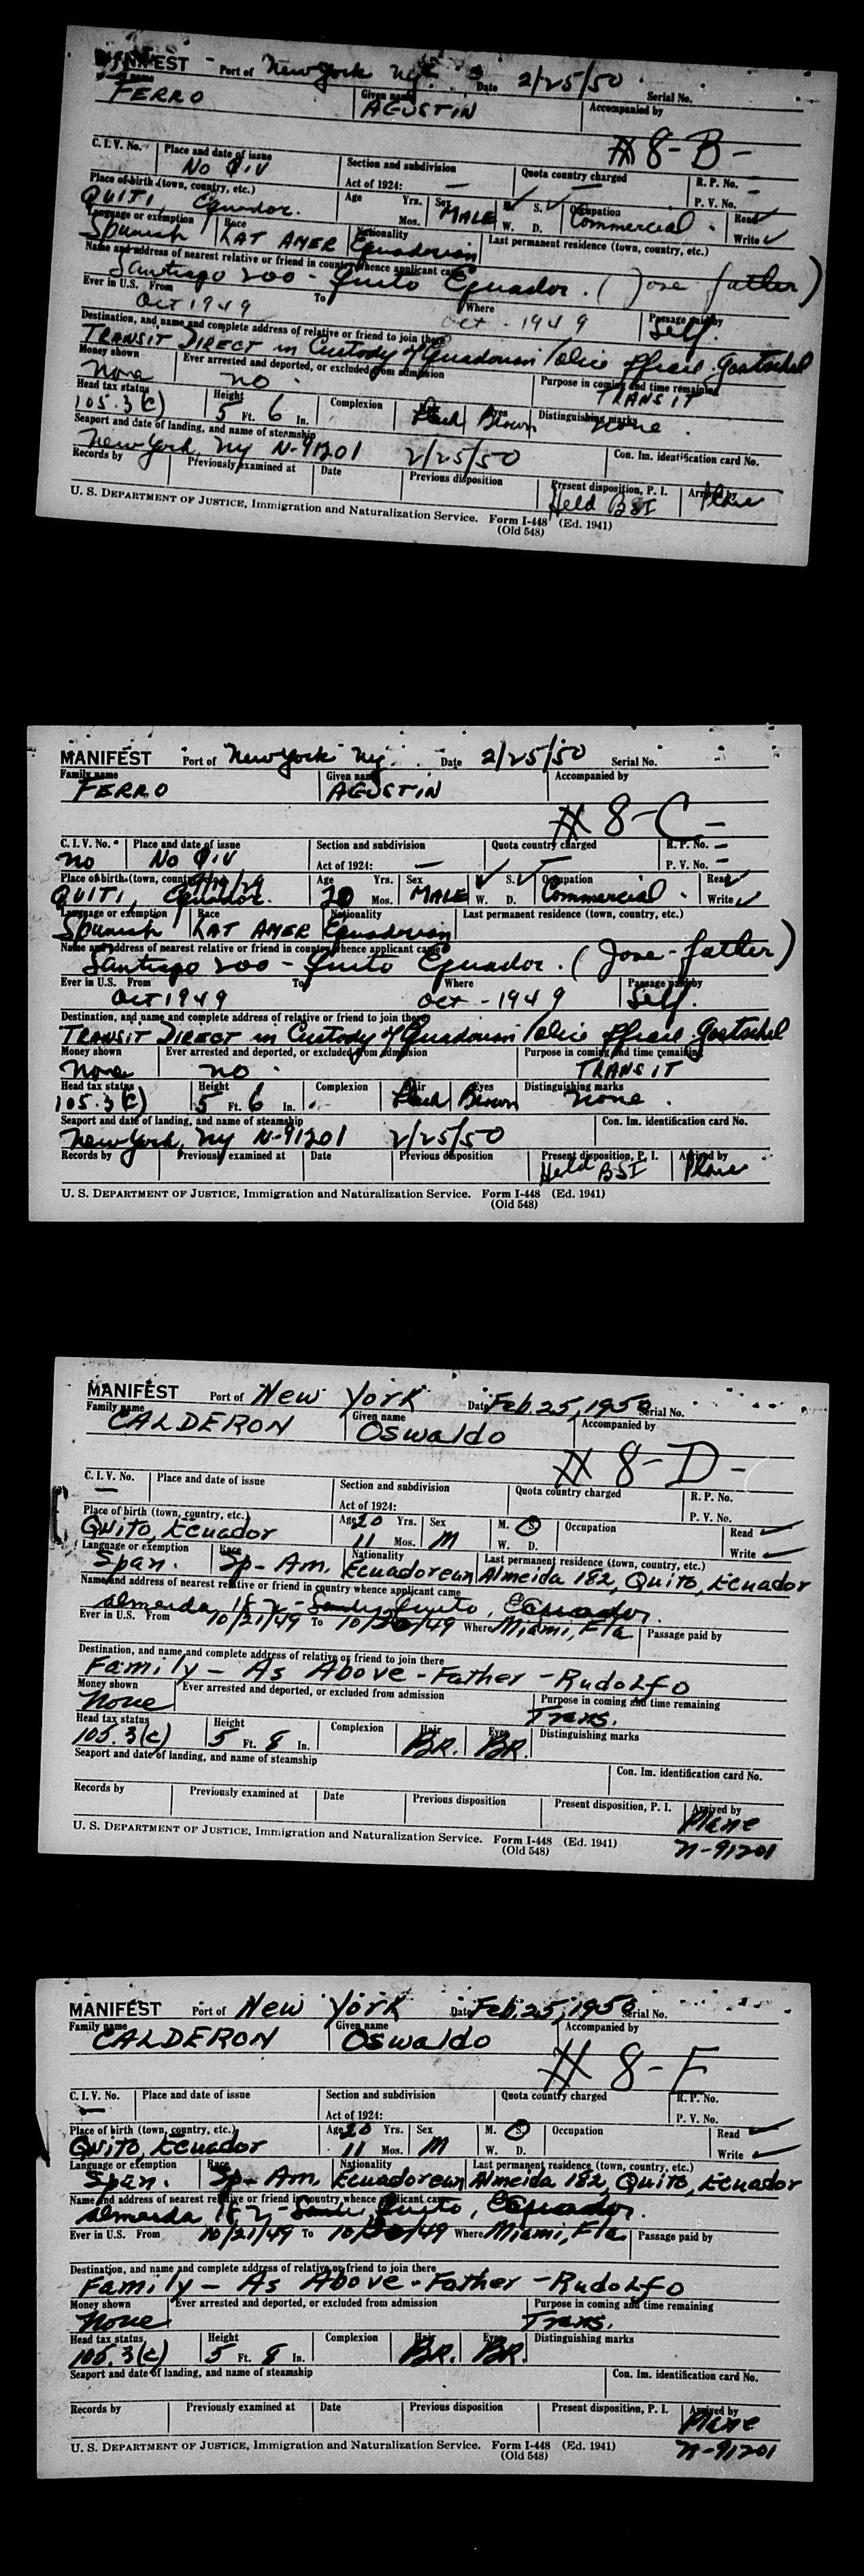 MANIFEST Port of New York Ny. Date 2/25/50 Serial No.
Family name Given name Accompanied by
FERRO AGUSTIN
# 8-B-
C. I. V. No. Place and date of issue Section and subdivision Quota country charged R. P. No. —
No Act of 1924: — P. V. No.
Place of birth (town, country, etc.) Age Yrs. Sex M. S. Occupation Read ✓
QUITI, Ecuador. Mos. MALE W. D. Commercial. Write ✓
Language or exemption Race Nationality Last permanent residence (town, country, etc.)
Spanish LAT AMER Ecuadorian
Name and address of nearest relative or friend in country whence applicant came
Santiago 200 - Quito Ecuador. (Jose father)
Ever in U.S. From To Where Passage paid by
Oct 1949 Oct - 1949 Self.
Destination, and name and complete address of relative or friend to join there
TRANSIT DIRECT in Custody of Ecuadorian Police
Money shown Ever arrested and deported, or excluded from admission Purpose in coming and time remaining
None no. TRANSIT
Head tax status Height Complexion Hair Eyes Distinguishing marks
105.3(c) 5 Ft. 6 In. Brown none.
Seaport and date of landing, and name of steamship Con. Im. identification card No.
New York, Ny N-91201 2/25/50
Records by Previously examined at Date Previous disposition Present disposition, P. I. Arrived by
Held BSI Plane
U. S. DEPARTMENT OF JUSTICE, Immigration and Naturalization Service. Form I-448 (Ed. 1941)
(Old 548)
MANIFEST Port of New York Ny. Date 2/25/50 Serial No.
Family name Given name Accompanied by
FERRO AGUSTIN
# 8-C-
C. I. V. No. Place and date of issue Section and subdivision Quota country charged R. P. No. —
no No Act of 1924: — P. V. No. —
Place of birth (town, country, etc.) Age Yrs. Sex M. S. Occupation Read ✓
QUITI, Ecuador. 20 Mos. MALE W. D. Commercial. Write ✓
Language or exemption Race Nationality Last permanent residence (town, country, etc.)
Spanish LAT AMER Ecuadorian
Name and address of nearest relative or friend in country whence applicant came
Santiago 200 - Quito Ecuador. (Jose - father)
Ever in U.S. From To Where Passage paid by
Oct 1949 Oct - 1949 Self.
Destination, and name and complete address of relative or friend to join there
TRANSIT DIRECT in Custody of Ecuadorian Police
Money shown Ever arrested and deported, or excluded from admission Purpose in coming and time remaining
None no. TRANSIT
Head tax status Height Complexion Hair Eyes Distinguishing marks
105.3(c) 5 Ft. 6 In. Brown none.
Seaport and date of landing, and name of steamship Con. Im. identification card No.
New York, Ny N-91201 2/25/50
Records by Previously examined at Date Previous disposition Present disposition, P. I. Arrived by
Held BSI Plane
U. S. DEPARTMENT OF JUSTICE, Immigration and Naturalization Service. Form I-448 (Ed. 1941)
(Old 548)
MANIFEST Port of New York Date Feb. 25, 1950 Serial No.
Family name Given name Accompanied by
CALDERON Oswaldo
# 8-D-
C. I. V. No. Place and date of issue Section and subdivision Quota country charged R. P. No.
— Act of 1924: P. V. No.
Place of birth (town, country, etc.) Age 20 Yrs. Sex M. S. Occupation Read ✓
Quito, Ecuador 11 Mos. M W. D. Write ✓
Language or exemption Race Nationality Last permanent residence (town, country, etc.)
Span. Sp-Am. Ecuadorean Almeida 182, Quito, Ecuador
Name and address of nearest relative or friend in country whence applicant came
Almeida 182 - Quito, Ecuador.
Ever in U.S. From 10/21/49 To 10/ /49 Where Miami, Fla Passage paid by
Destination, and name and complete address of relative or friend to join there
Family - As Above - Father - Rudolfo
Money shown Ever arrested and deported, or excluded from admission Purpose in coming and time remaining
None Trans.
Head tax status Height Complexion Hair Eyes Distinguishing marks
105.3(c) 5 Ft. 8 In. BR. BR.
Seaport and date of landing, and name of steamship Con. Im. identification card No.
Records by Previously examined at Date Previous disposition Present disposition, P. I. Arrived by
Plane
U. S. DEPARTMENT OF JUSTICE, Immigration and Naturalization Service. Form I-448 (Ed. 1941) N-91201
(Old 548)
MANIFEST Port of New York Date Feb. 25, 1950 Serial No.
Family name Given name Accompanied by
CALDERON Oswaldo
# 8-E
C. I. V. No. Place and date of issue Section and subdivision Quota country charged R. P. No.
— Act of 1924: P. V. No.
Place of birth (town, country, etc.) Age 20 Yrs. Sex M. S. Occupation Read ✓
Quito, Ecuador 11 Mos. M W. D. Write ✓
Language or exemption Race Nationality Last permanent residence (town, country, etc.)
Span. Sp-Am. Ecuadorean Almeida 182, Quito, Ecuador
Name and address of nearest relative or friend in country whence applicant came
Almeida 182 - Quito, Ecuador.
Ever in U.S. From 10/21/49 To 10/ /49 Where Miami, Fla. Passage paid by
Destination, and name and complete address of relative or friend to join there
Family - As Above - Father - Rudolfo
Money shown Ever arrested and deported, or excluded from admission Purpose in coming and time remaining
None Trans.
Head tax status Height Complexion Hair Eyes Distinguishing marks
105.3(c) 5 Ft. 8 In. BR. BR.
Seaport and date of landing, and name of steamship Con. Im. identification card No.
Records by Previously examined at Date Previous disposition Present disposition, P. I. Arrived by
Plane
U. S. DEPARTMENT OF JUSTICE, Immigration and Naturalization Service. Form I-448 (Ed. 1941) N-91201
(Old 548)